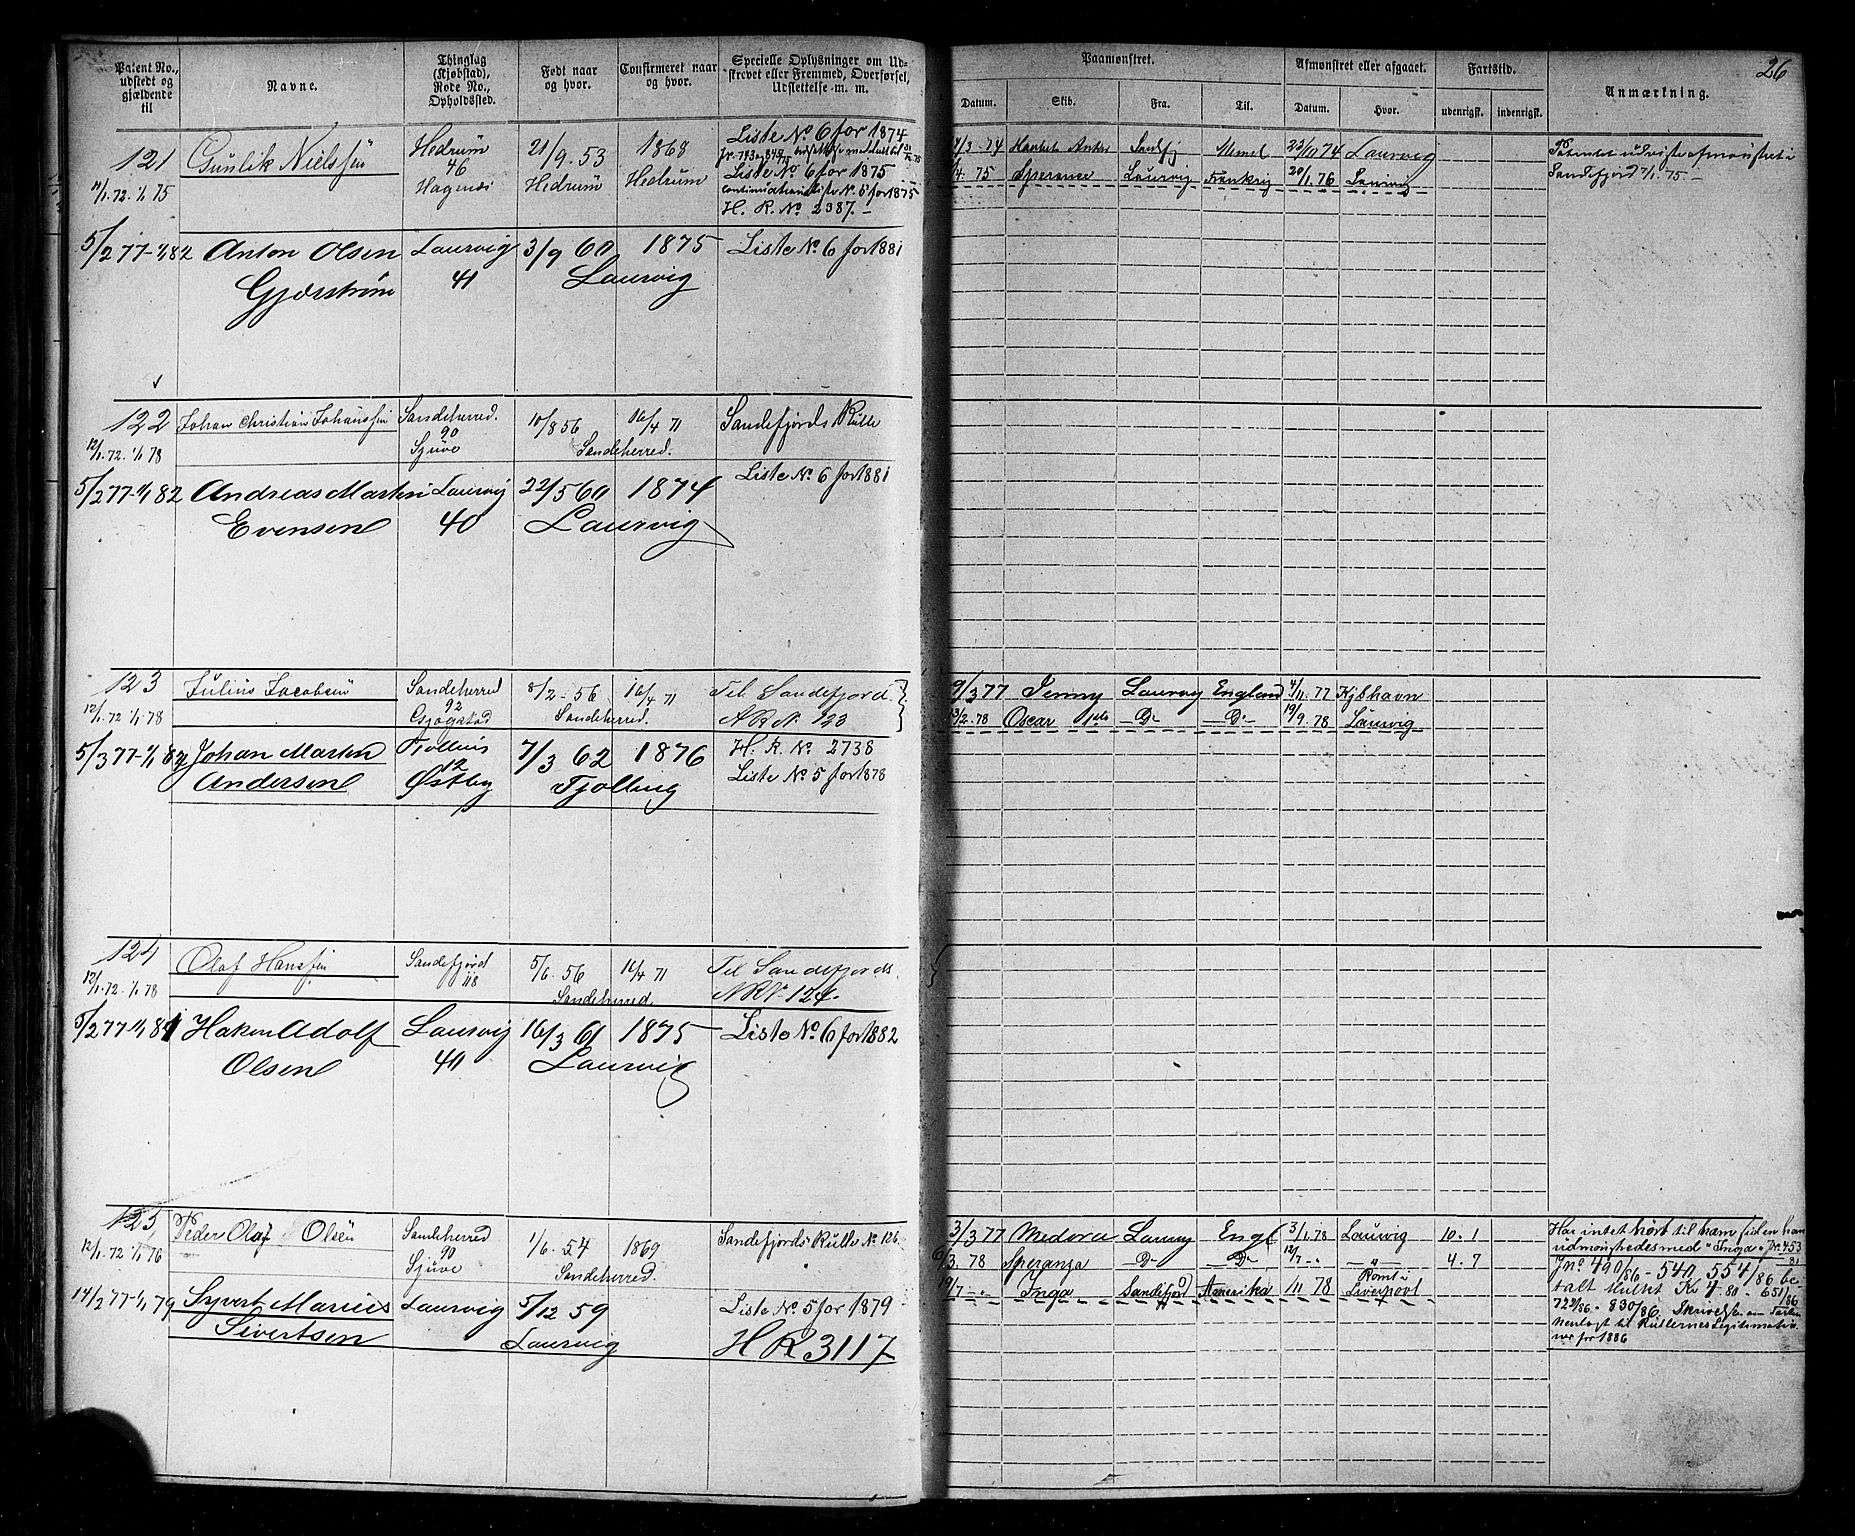 Patent No., udstedt og gjældende til
Navne.
Thinglag (Kjøbstad), Rode No., Opholdssted.
Født naar og hvor.
Confirmeret naar og hvor.
Specielle Oplysninger om Udskrevet eller Fremmed, Overførsel, Udslettelse m. m.
Paamønstret.
Datum.
Skib.
Fra.
Til.
Afmønstret eller afgaaet.
Datum.
Hvor.
Fartstid.
udenrigsk.
indenrigsk.
Anmærkning.
26
121 Gunlik Nielssen Hedrum 21/9.53 1868 Liste No 6 for 1874
46
1/1.75 Hagenæs Hedrum Hedrum Liste No 6 for 1875
continuationsliste No 5 for 1875
H. R. No 2387.
74 Sandefj Memel 74 Laurvig
75 Sperance Laurvig Frankrig 20/1.76 Laurvig
Patentet udviste afmønstret i
Sandefjord 75
5/2 77-1/1 82 Anton Olsen Laurvig 3/9 60 1875 Liste No 6 for 1881
Gjerstrøm 41 Laurvig
122 Johan Christian Johanssen Sandeherred. 10/8 56 16/4 71 Sandefjords Rulle
90
12/1.72.1/1 78 Sjuve Sandeherred.
5/2 77-1/1 82 Andreas Martin Laurvig 22/5 60 1874 Liste No 6 for 1881
Evensen 40 Laurvig
123 Julius Jacobsen Sandeherred 8/2-56 16/4 71 Til Sandefjord.
92
12/1.72 1/1 78 Gjøgstad Sandeherred. A R No 123
9/3 77 Jenny Laurvig England 4/11.77 Kjøbhavn
13/2.78 Oscar D- D- 19/9.78 Laurvig
5/3 77-1/1 Johan Martin Tjølling 7/3 62 1876 H. R. No 2738
12
Andersen Østby Tjølling Liste No 5 for 1878
124 Olaf Hanssen Sandefjord 5/6.56 16/4 71 Til Sandefjords
118
12/1.72.1/1 78 Sandeherred A R No 124.
5/2 77-1/1 Hakon Adolf Laurvig 16/3 61 1875 Liste No 6 for 1882
Olsen 40 Laurvig
125 Peder Olaf Olsen Sandeherred 1/6.54 1869 Sandefjords Rulle No 126
90
12/1.72 1/1 76 Sjuve Sandeherred.
3/3 77 Medora Laurvig Engl 3/1.78 Laurvig 10.1
6/3.78 Speranza D- D- 12/7- -"- 4.7
19/7- Inga Sandefjord Amerika /11 78 Rømt i Liverpool
Har intet hørt til ham siden han
udmønstredes med "Inga" Nr. 453
Jno 490/86 - 540 554/86 be
talt Mulkt Kr 4-80 - 651/86
722/86 - 830/86. Skrivelse om
henlagt til Rullernes Legitimatio
ner for 1886
14/2 77-1/1 79 Syvert Marius Laurvig 5/12 59 Liste No 5 for 1879
Sivertsen Laurvig H R 3117